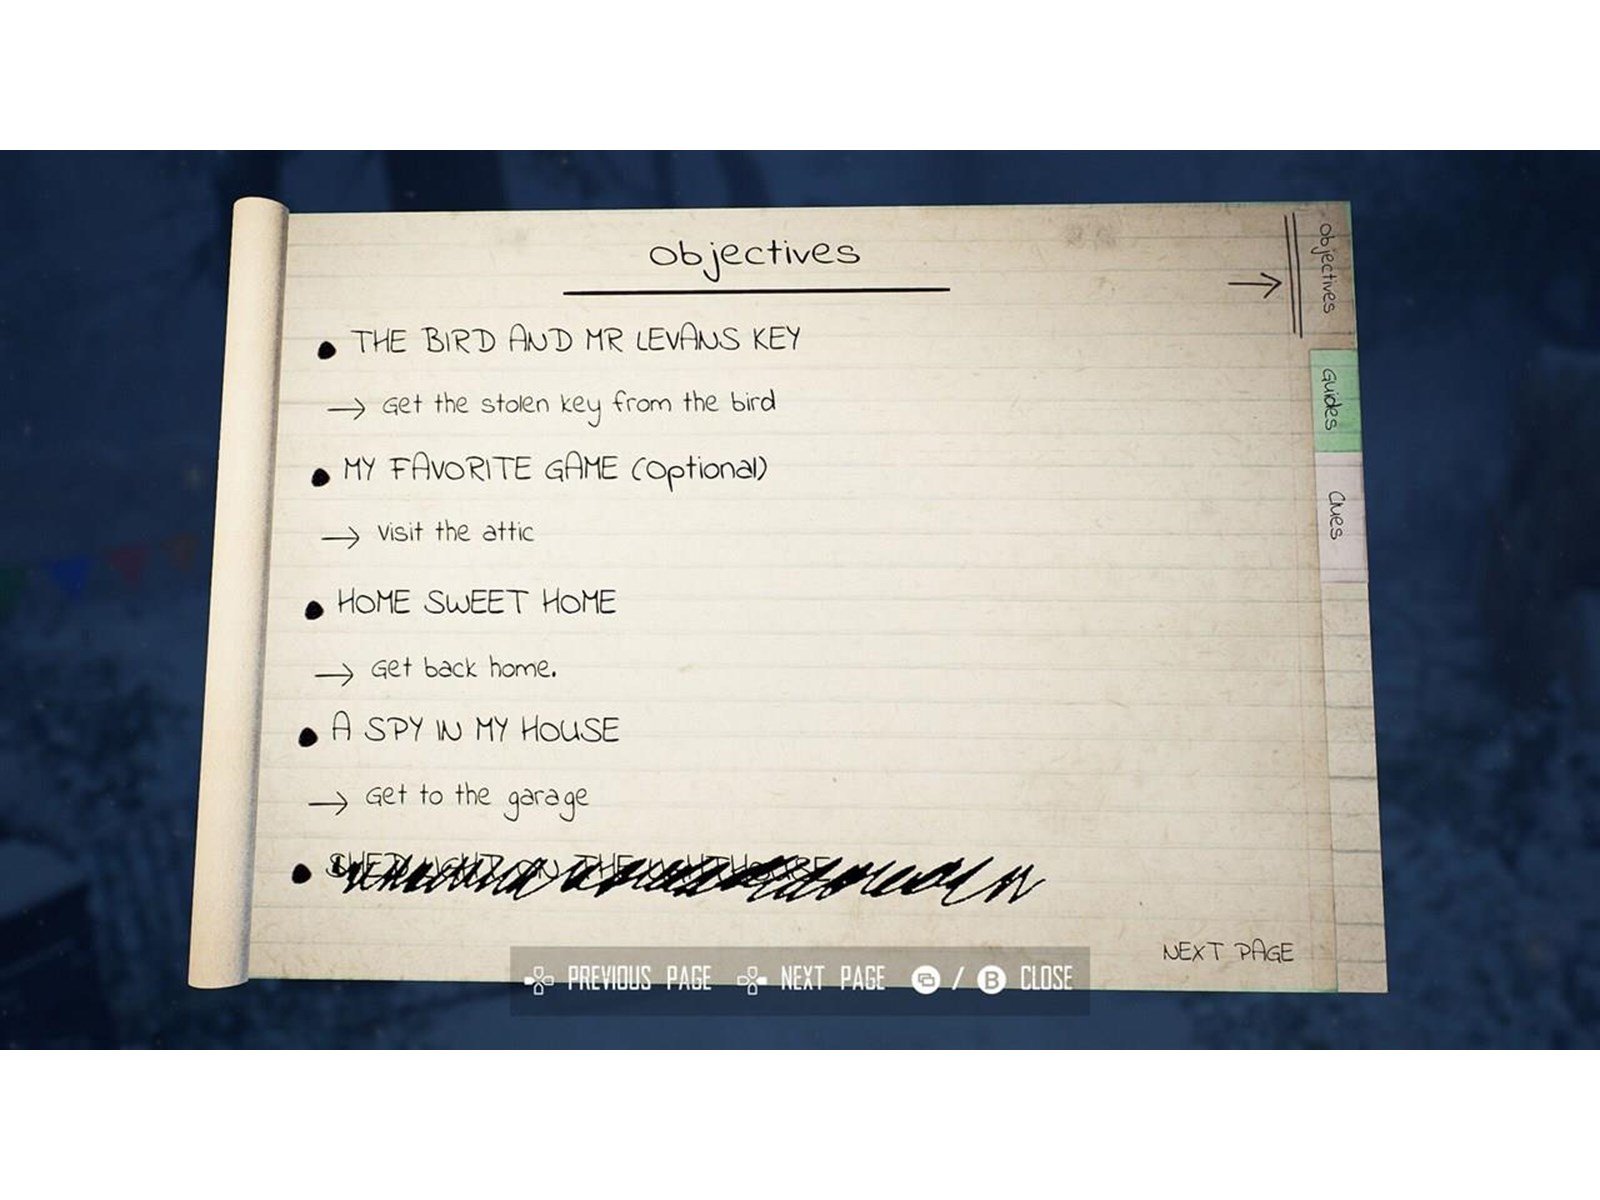 Objectives
THE BIRD AND MR LEVANS KEY
Get the stolen key from the bird
MY FAVORITE GAME (Optional)
Visit the attic
HOME SWEET HOME
Get back home.
A SPY IN MY HOUSE
Get to the garage
SHED LIGHT ON THE
NEXT PAGE
Objectives
Guides
Clues
PREVIOUS PAGE NEXT PAGE / B CLOSE